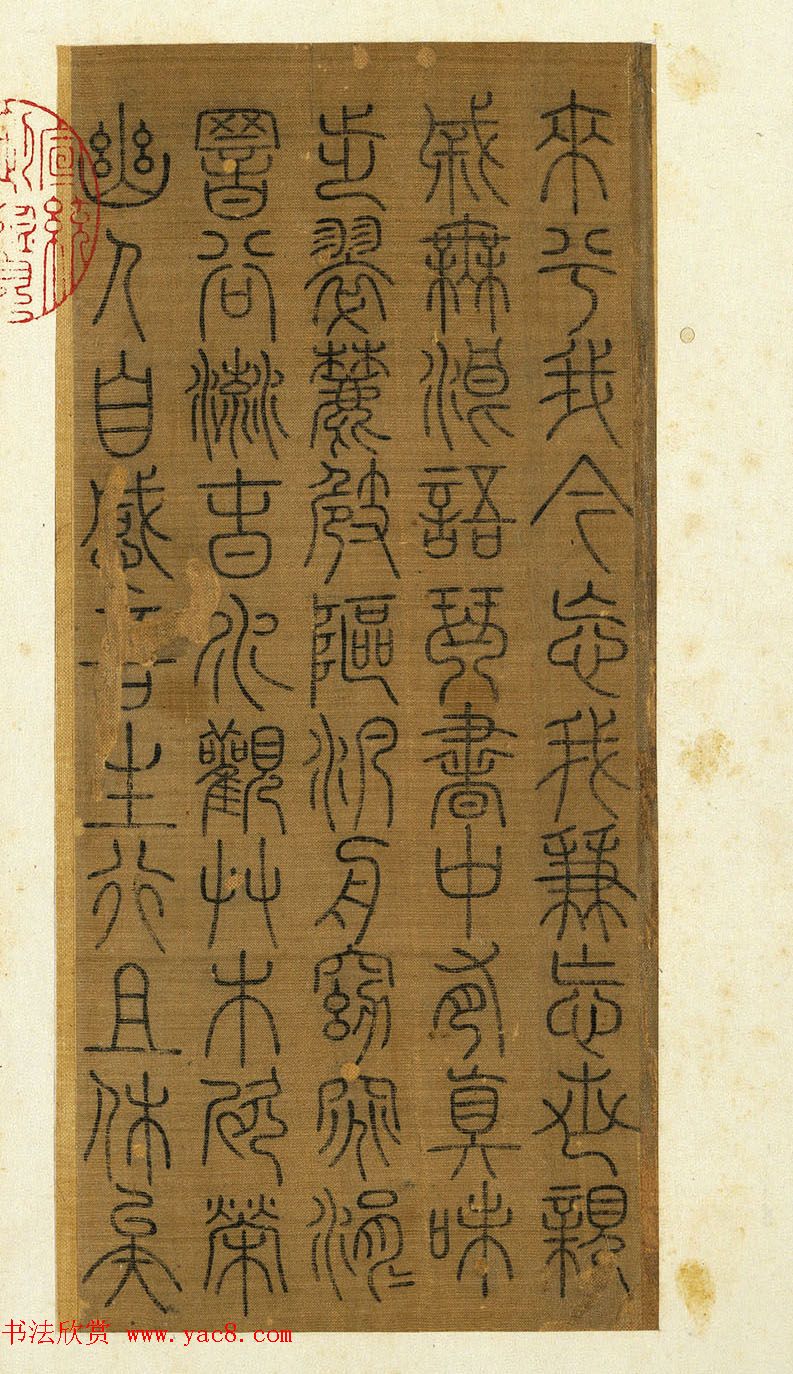 來兮我今忘我兼忘世親
戚無浪語琴書中有真味
步翠麓㩻䧢汎舟窈窕涓〻
暗谷流旾水觀艸木欣榮
幽人自感吾生行且休矣
书法欣赏 www.yac8.com